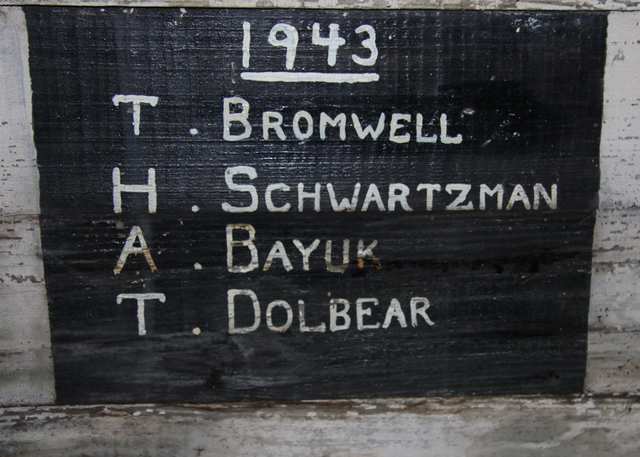 1943
T. BROMWELL
H. SCHWARTZMAN
A. BAYUK
T. DOLBEAR